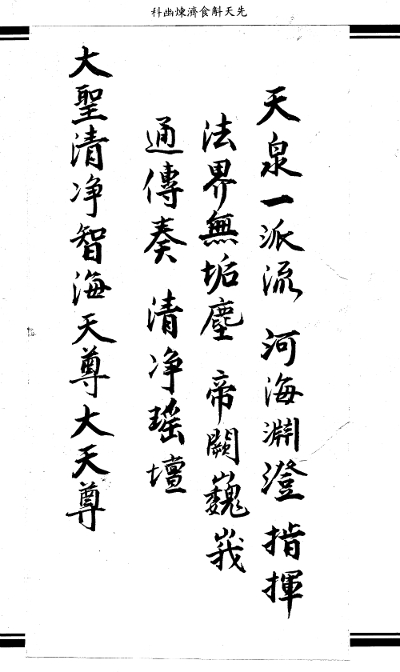 先天斛食濟煉幽科
天泉一派流 河海淵澄 指揮
法界無垢塵 帝闕巍峩
通傳奏 清净瑶壇
大聖清净智海天尊大天尊